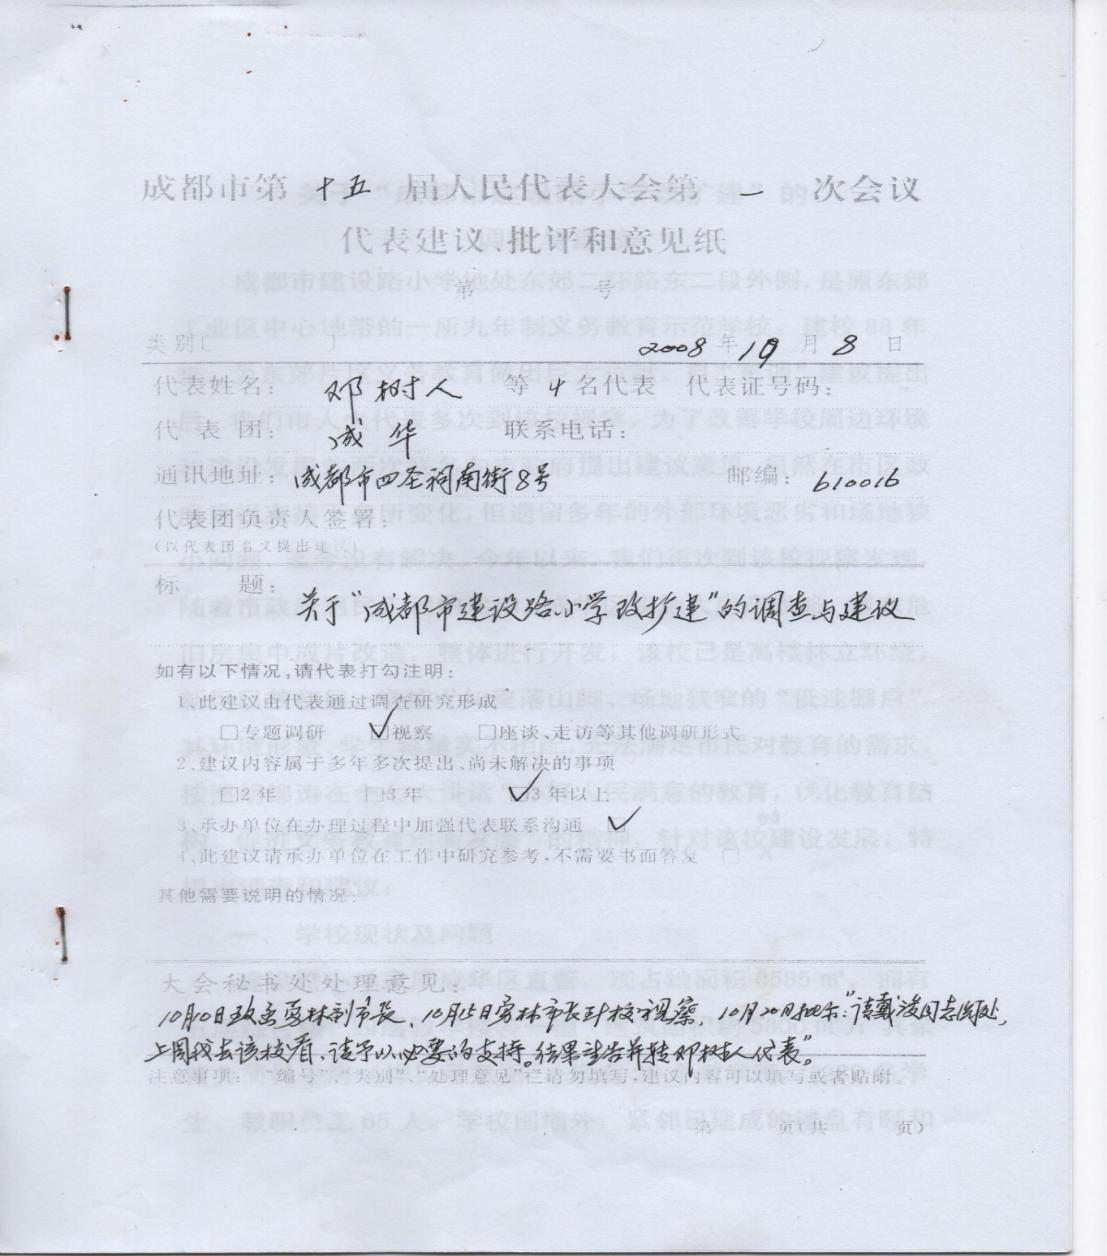 成都市第 十五 届人民代表大会第 一 次会议
代表建议、批评和意见纸
第 号
类别〔 〕 2008 年 10 月 8 日
代表姓名: 邓树人 等 4 名代表 代表证号码:
代 表 团: 成 华 联系电话:
通讯地址: 成都市四圣祠南街8号 邮编: 610016
代表团负责人签署:
(以代表团名义提出建议)
标 题: 关于“成都市建设路小学改扩建”的调查与建议
如有以下情况,请代表打勾注明:
1、此建议由代表通过调查研究形成
□专题调研 ☑视察 □座谈、走访等其他调研形式
2、建议内容属于多年多次提出、尚未解决的事项
□2年 □3年 ☑3年以上
3、承办单位在办理过程中加强代表联系沟通 ☑
4、此建议请承办单位在工作中研究参考,不需要书面答复 □
其他需要说明的情况:
大会秘书处处理意见:
10月10日 副市长、10月15日 市长到校视察, 10月20日批示:“请戴凌同志阅处,
上周我去该校看,请予以必要的支持。结果 告并转邓树人代表”。
注意事项: “编号”、“类别”、“处理意见”栏请勿填写,建议内容可以填写或者贴附。
第 页(共 页)